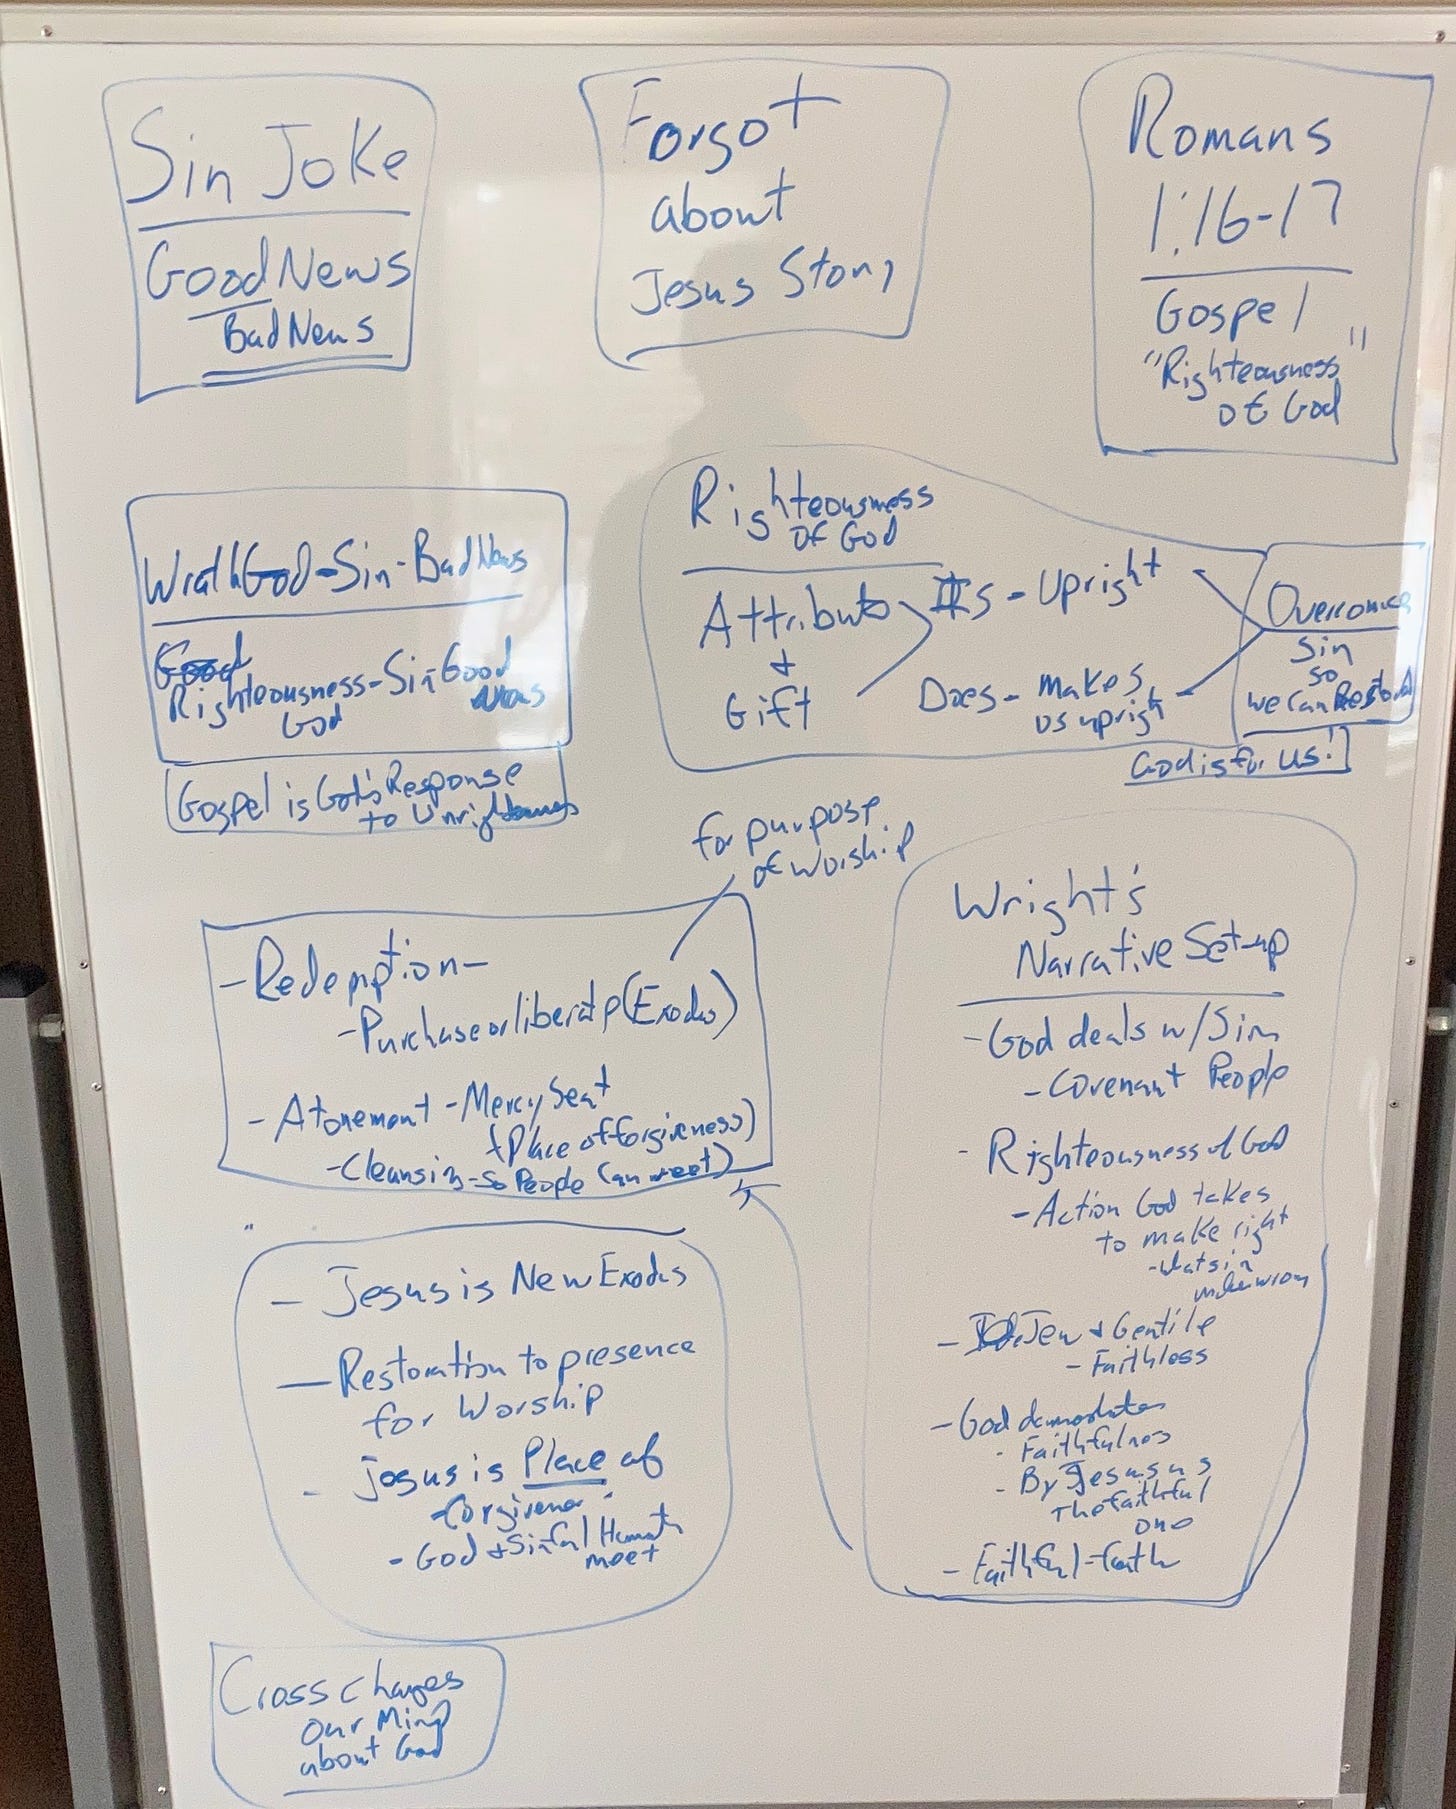 Sin Joke
Good News
Bad News
Forgot
about
Jesus Story
Romans
1:16-17
Gospel
"Righteousness"
of God
Wrath God - Sin - Bad News
Good
Righteousness - Sin Good
God News
Gospel is God's Response
to Unrighteousness
Righteousness
of God
Attribute
+
Gift
Is - Upright
Does - makes
us upright
Overcomes
Sin
so
we can Restored
God is for us!
for purpose
of worship
- Redemption -
- Purchase or liberate (Exodus)
- Atonement - Mercy Seat
(Place of forgiveness)
- Cleansing - so People can meet)
Wright's
Narrative Set-up
- God deals w/ Sin
- Covenant People
- Righteousness of God
- Action God takes
to make right
- whats in
- Jew + Gentile
- Faithless
- God demonstrates
- Faithfulness
- By Jesus as
The faithful
one
- Faithful - faith
- Jesus is New Exodus
- Restoration to presence
for Worship
- Jesus is Place of
forgiveness
- God + Sinful Humanity
meet
Cross changes
our Mind
about God